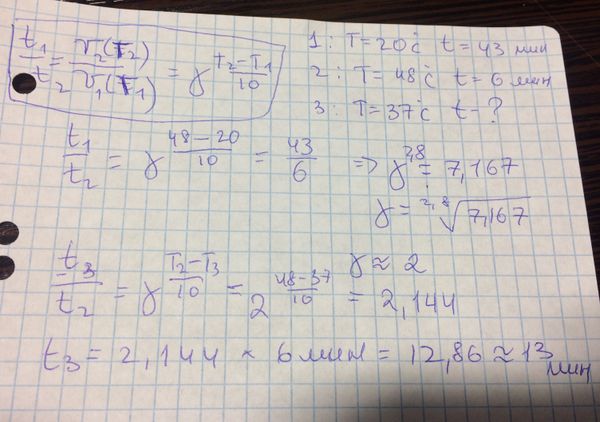 t₁/t₂ = v₂(T₂)/v₁(T₁) = γ^((t₂-T₁)/10)
1: T=20°c t=43 мин
2: T=48°c t=6 мин
3: T=37°c t-?
t₁/t₂ = γ^((48-20)/10) = 43/6 => γ^2,8 = 7,167
γ = ^2,8√7,167
γ ≈ 2
t₃/t₂ = γ^((T₂-T₃)/10) = 2^((48-37)/10) = 2,144
t₃ = 2,144 × 6 мин = 12,86 ≈ 13 мин